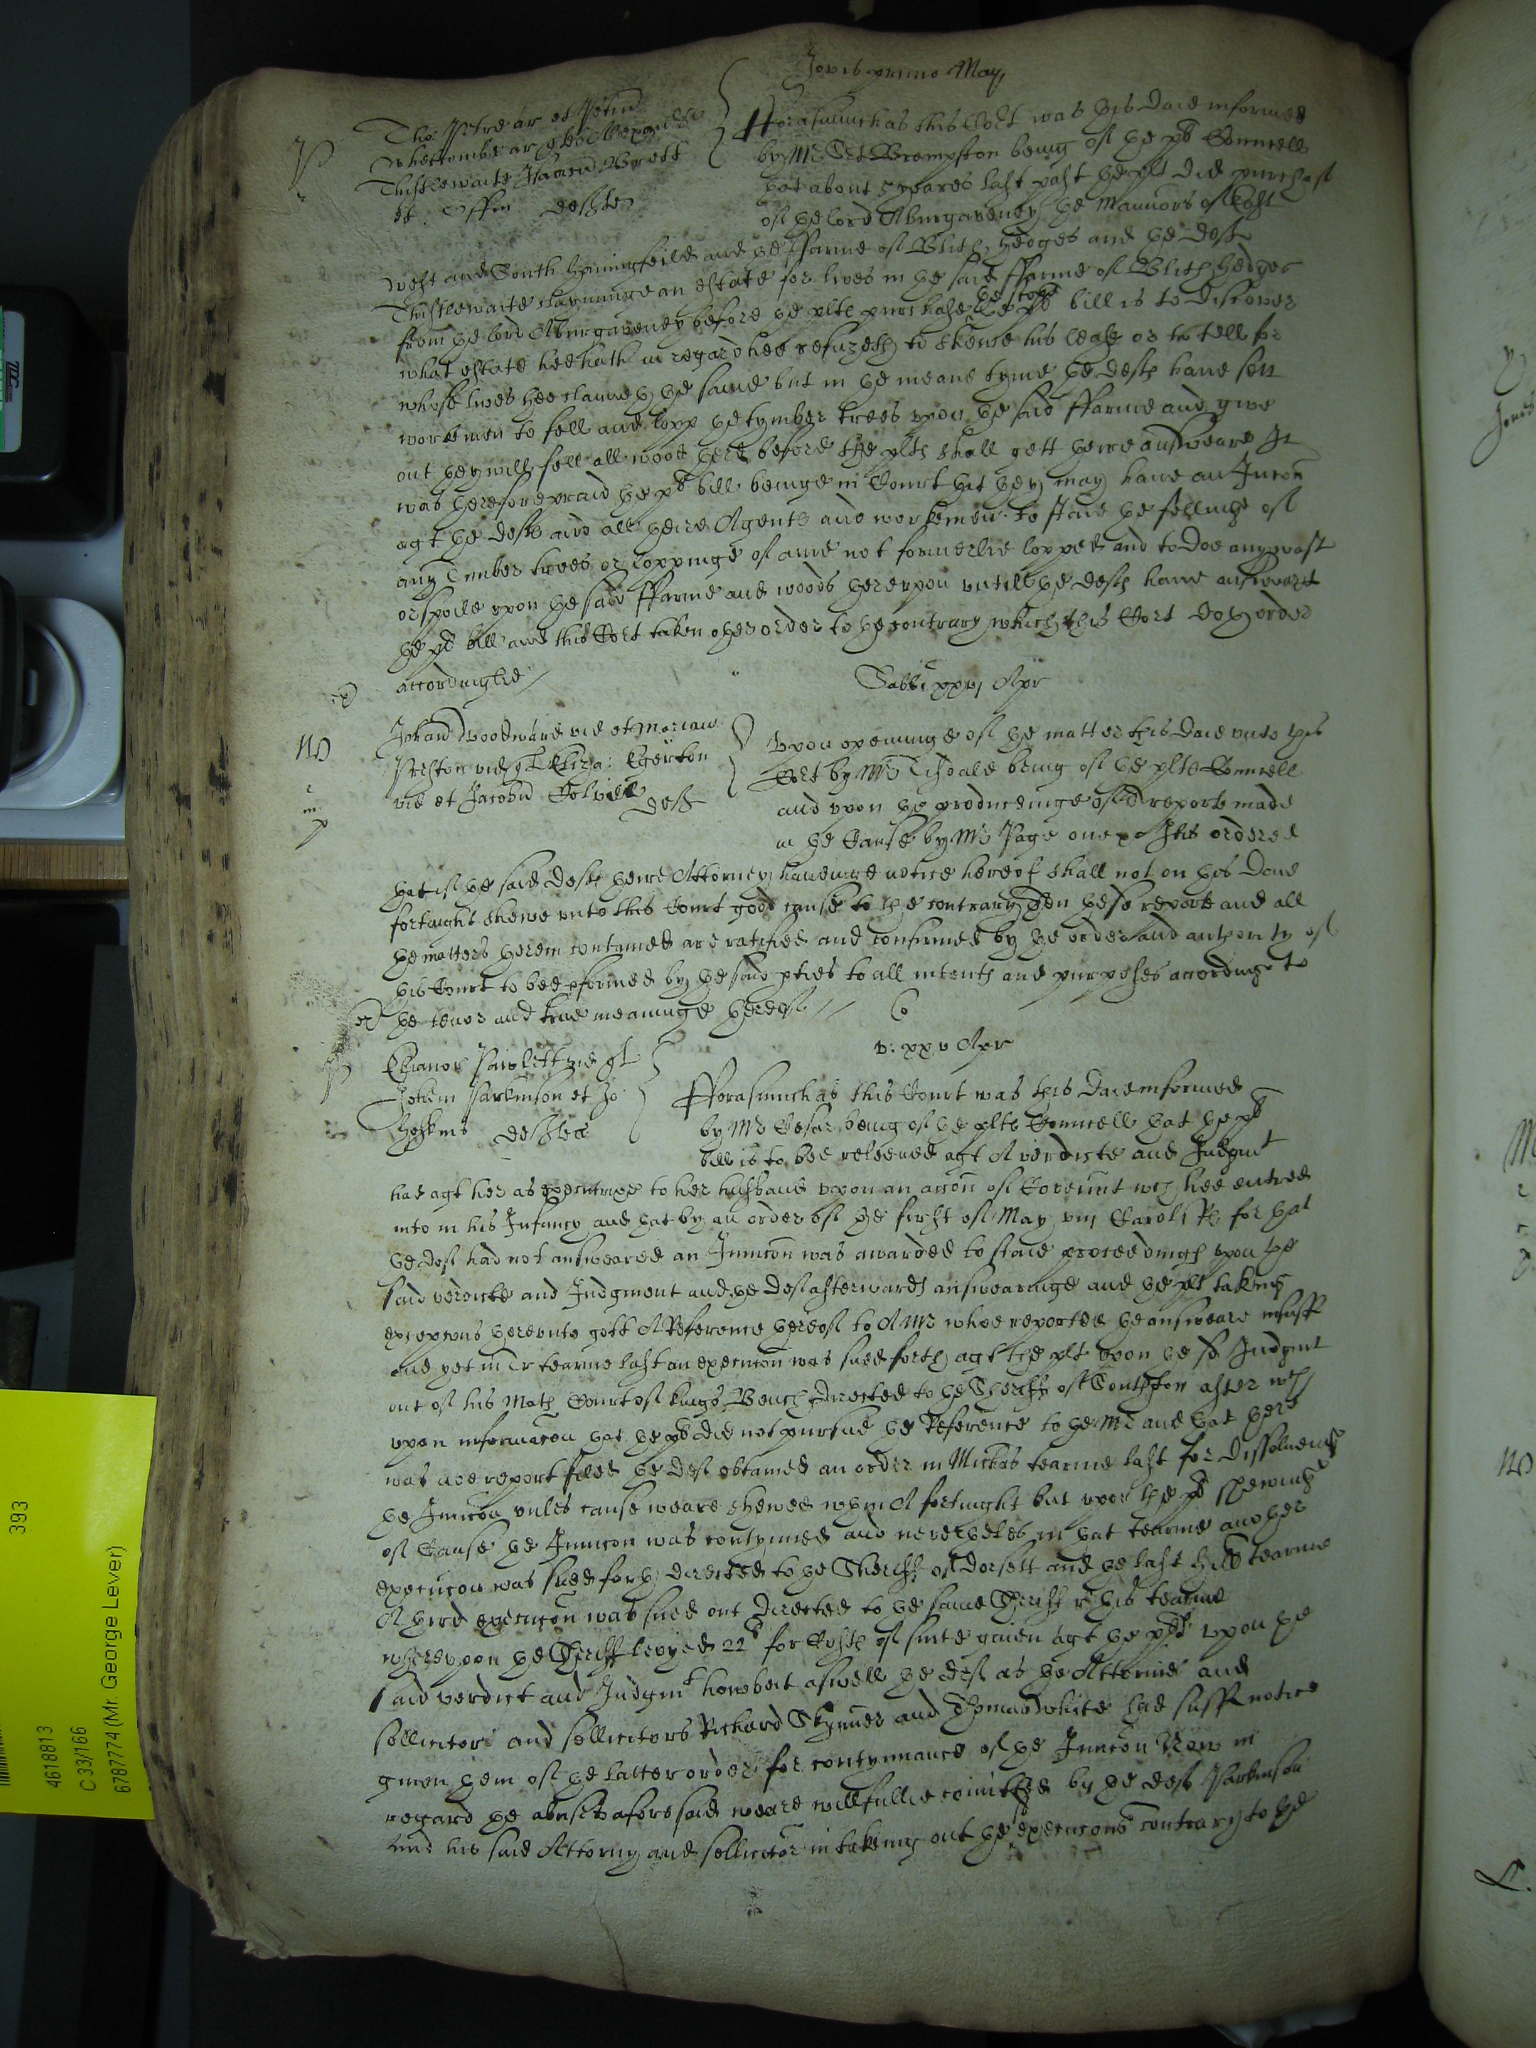 Jovis primo May
Tho: Petre ar et
Whetcombe ar
Thistlewaite
et uxor deftes
Forasmuch as this Cort was this daie informed
by Mr Brompston being of the pts Councell
that about 5 yeares last past the plt did purchase
of the lord Aburgaveney the Mannors of East
West and South Hanningfeild and the ffarme of Blith hedges and the deft
Thistlewaite clayminge an estate for lives in the said ffarme of Blith hedges
from the lord Aburgaveney before the plts purchase the scope bill is to discover
what estate hee hath in regard hee refuzeth to shewe his lease or to tell for
whose lives hee claymeth the same but in the meane tyme the defts have sett
workmen to fell and lopp the tymber trees upon the said ffarme and give
out they will fell all wood there before the plts shall gett theire answeare It
was therefore praid the pts bill beinge in Court that they may have an Iniuncon
agt the defts and all theire Agents and workmen to staie the fellinge of
any Timber trees or loppinge of anie not formerlie lopped and to doe any wast
or spoile upon the said ffarme and woods thereupon untill the defts have answeared
the pts bill and this Cort taken other order to the contrary which this Cort doth order
accordinglie
Sabbi xxvj Apr
Johan Woodward vid et Marian
Preston vid qt Eliza: Egerton
vid et Jacobu Colvill
defts
Upon openinge of the matter this daie unto this
Cort by Mr Tisdale being of the plts Councell
and upon the produceinge of a reporte made
in the Cause by Mr Page one &c It is ordered
that if the said defts theire Attorney haveinge notice hereof shall not on this daie
fortnight shewe unto this Court good cause to the contrary then the sd reporte and all
the matters therein conteyned are ratified and confirmed by the order and authority of
this Court to bee pformed by the said pties to all intents and purposes accordinge to
the tenor and true meaninge thereof
v: xxv Apr
Elianor Pawlett vid qt
Johem Parkinson et Jo:
Hoskins defstes
Fforasmuch as this Court was this daie informed
by Mr Cesar being of the plts Councell that the pts
bill is to bee releeved agt A verdicte and Judgmt
had agt her as executrixe to her husband uppon an accon of Covennt wch hee entred
into in his Infancy and that by an order of the first of May viij Caroli R for that
the deft had not answeared an Iniuncon was awarded to staie proceedings upon the
said verdicte and Judgment and the deft afterwards answearinge and the plt takeing
excepcons thereunto gott A Reference thereof to A Mr whoe reported the answeare insuff
and yet in Tr tearme last an execucon was sued forth agt the plt upon the sd Judgmt
out of his Mats Court of kings Bench directed to the Sheriffe of Southton after wch
upon informacon that the pt did not pursue the Reference to the Mr and that there
was noe report filed the deft obtained an order in Michas tearme last for dissolveing
the Iniuncon unles cause weare shewed wthin A fortnight but upon the pts shewinge
of Cause the Iniuncon was contynued and neverthelesse in that tearme another
execucon was sued forth directed to the Sheriffe of Dorsett and the last Hill tearme
A third execucon was sued out directed to the same Sheriffe this tearme
whereuppon the Sheriffe levyed 22l for Costs of suite given agt the plt upon the
said verdict and Judgmt howbeit aswell the deft as the Attornie and
sollicitors and sollicitors Richard Skynner and Thomas White had suff notice
given them of the latter order for contynuance of the Iniuncon Now in
regard the abuses aforesaid weare willfullie comitted by the deft Parkinson
and his said Attorny and sollicitor in takeing out the execucons contrary to the
393
4618813
C 33/166
6787774 (Mr. George Lever)